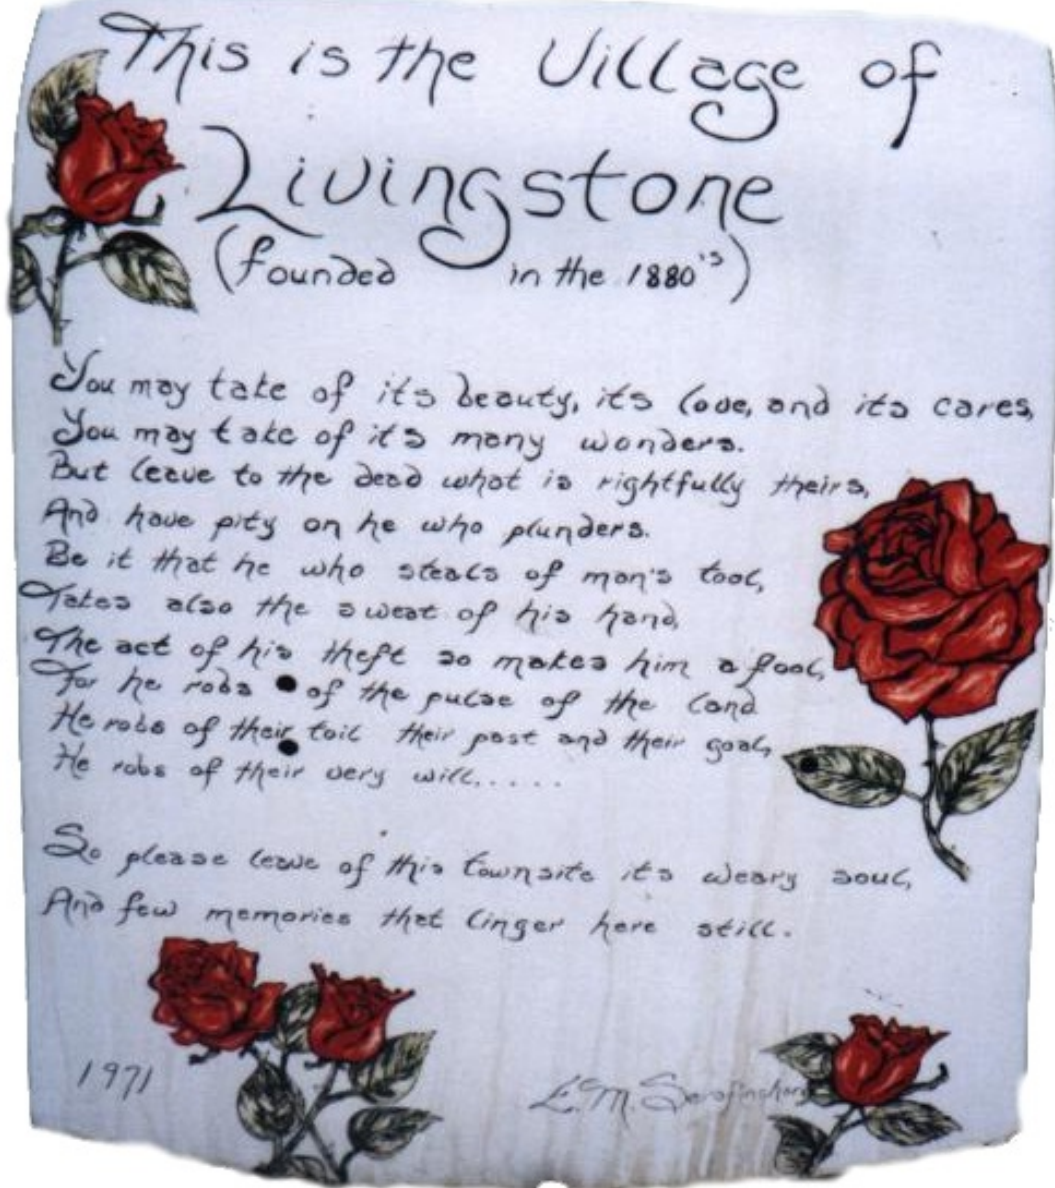 This is the Village of
Livingstone
(founded in the 1880's)
You may take of its beauty, its love, and its cares,
You may take of its many wonders.
But leave to the dead what is rightfully theirs,
And have pity on he who plunders.
Be it that he who steals of man's tool,
Takes also the sweat of his hand,
The act of his theft so makes him a fool,
For he robs of the pulse of the land
He robs of their toil their past and their goal,
He robs of their very will.....
So please leave of this townsite its weary soul,
And few memories that linger here still.
1971
E.M.